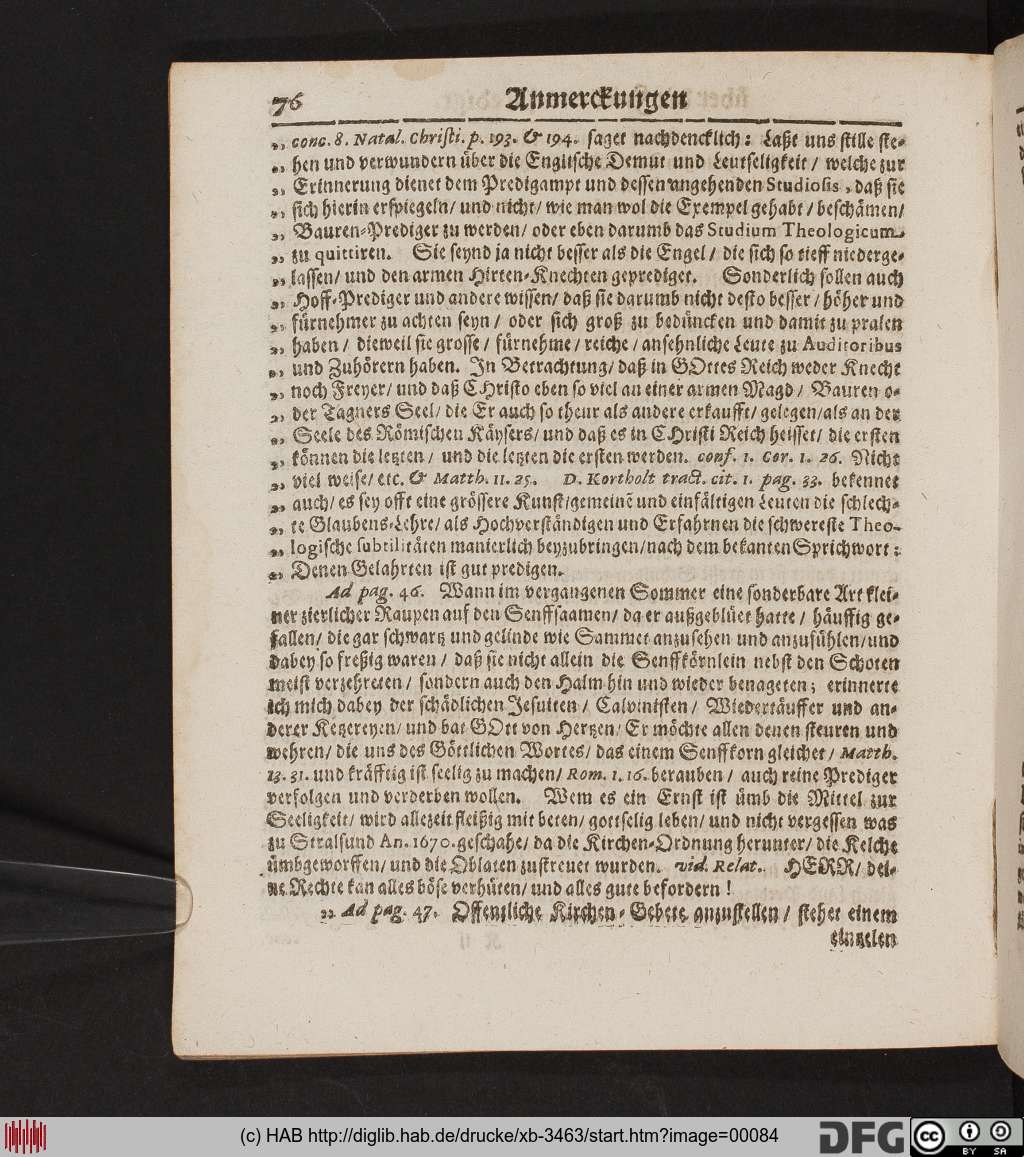 76 Anmerckungen
„ conc. 8. Natal. Christi. p. 193. & 194. saget nachdencklich: Laßt uns stille ste-
„ hen und verwundern über die Englische Demut und Leutseligkeit / welche zur
„ Erinnerung dienet dem Predigampt und dessen angehenden Studiosis, daß sie
„ sich hierin erspiegeln/ und nicht/ wie man wol die Exempel gehabt / beschämen/
„ Bauren-Prediger zu werden/ oder eben darumb das Studium Theologicum
„ zu quittiren. Sie seynd ja nicht besser als die Engel / die sich so tieff niederge-
„ lassen/ und den armen Hirten-Knechten geprediget. Sonderlich sollen auch
„ Hoff-Prediger und andere wissen/ daß sie darumb nicht desto besser / höher und
„ fürnehmer zu achten seyn / oder sich groß zu bedüncken und damit zu pralen
„ haben / dieweil sie grosse / fürnehme / reiche / ansehnliche Leute zu Auditoribus
„ und Zuhörern haben. In Betrachtung/ daß in GOttes Reich weder Knecht
„ noch Freyer/ und daß CHristo eben so viel an einer armen Magd / Bauren o-
„ der Tagners Seel/ die Er auch so theur als andere erkaufft/ gelegen/als an der
„ Seele des Römischen Käysers/ und daß es in CHristi Reich heisset/ die ersten
„ können die letzten / und die letzten die ersten werden. conf. 1. Cor. 1. 26. Nicht
„ viel weise/ etc. & Matth. 11. 25. D. Kortholt tract. cit. 1. pag. 33. bekennet
„ auch/ es sey offt eine grössere Kunst/gemeinē und einfältigen Leuten die schlech-
„ te Glaubens-Lehre/ als Hochverständigen und Erfahrnen die schwereste Theo-
„ logische subtilitäten manierlich beyzubringen/nach dem bekanten Sprichwort:
„ Denen Gelahrten ist gut predigen.
Ad pag. 46. Wann im vergangenen Sommer eine sonderbare Art klei-
ner zierlicher Raupen auf den Senffsaamen/ da er außgeblüet hatte / häuffig ge-
fallen/ die gar schwartz und gelinde wie Sammet anzusehen und anzufühlen/und
dabey so freßig waren / daß sie nicht allein die Senffkörnlein nebst den Schoten
meist verzehreten / sondern auch den Halm hin und wieder benageten; erinnerte
ich mich dabey der schädlichen Jesuiten / Calvinisten / Wiedertäuffer und an-
derer Ketzereyen/ und bat GOtt von Hertzen/ Er möchte allen denen steuren und
wehren/ die uns des Göttlichen Wortes/ das einem Senffkorn gleichet / Matth.
13. 31. und kräfftig ist seelig zu machen/ Rom. 1. 16. berauben / auch reine Prediger
verfolgen und verderben wollen. Wem es ein Ernst ist ümb die Mittel zur
Seeligkeit/ wird allezeit fleißig mit beten/ gottselig leben/ und nicht vergessen was
zu Stralsund An. 1670. geschahe/ da die Kirchen-Ordnung herunter/ die Kelche
ümbgeworffen/ und die Oblaten zustreuet wurden. vid. Relat. HERR/ dei-
ne Rechte kan alles böse verhüten/ und alles gute befordern!
„ Ad pag. 47. Offentliche Kirchen-Gebete anzustellen / stehet einem
eintzelen
(c) HAB http://diglib.hab.de/drucke/xb-3463/start.htm?image=00084
DFG cc BY SA